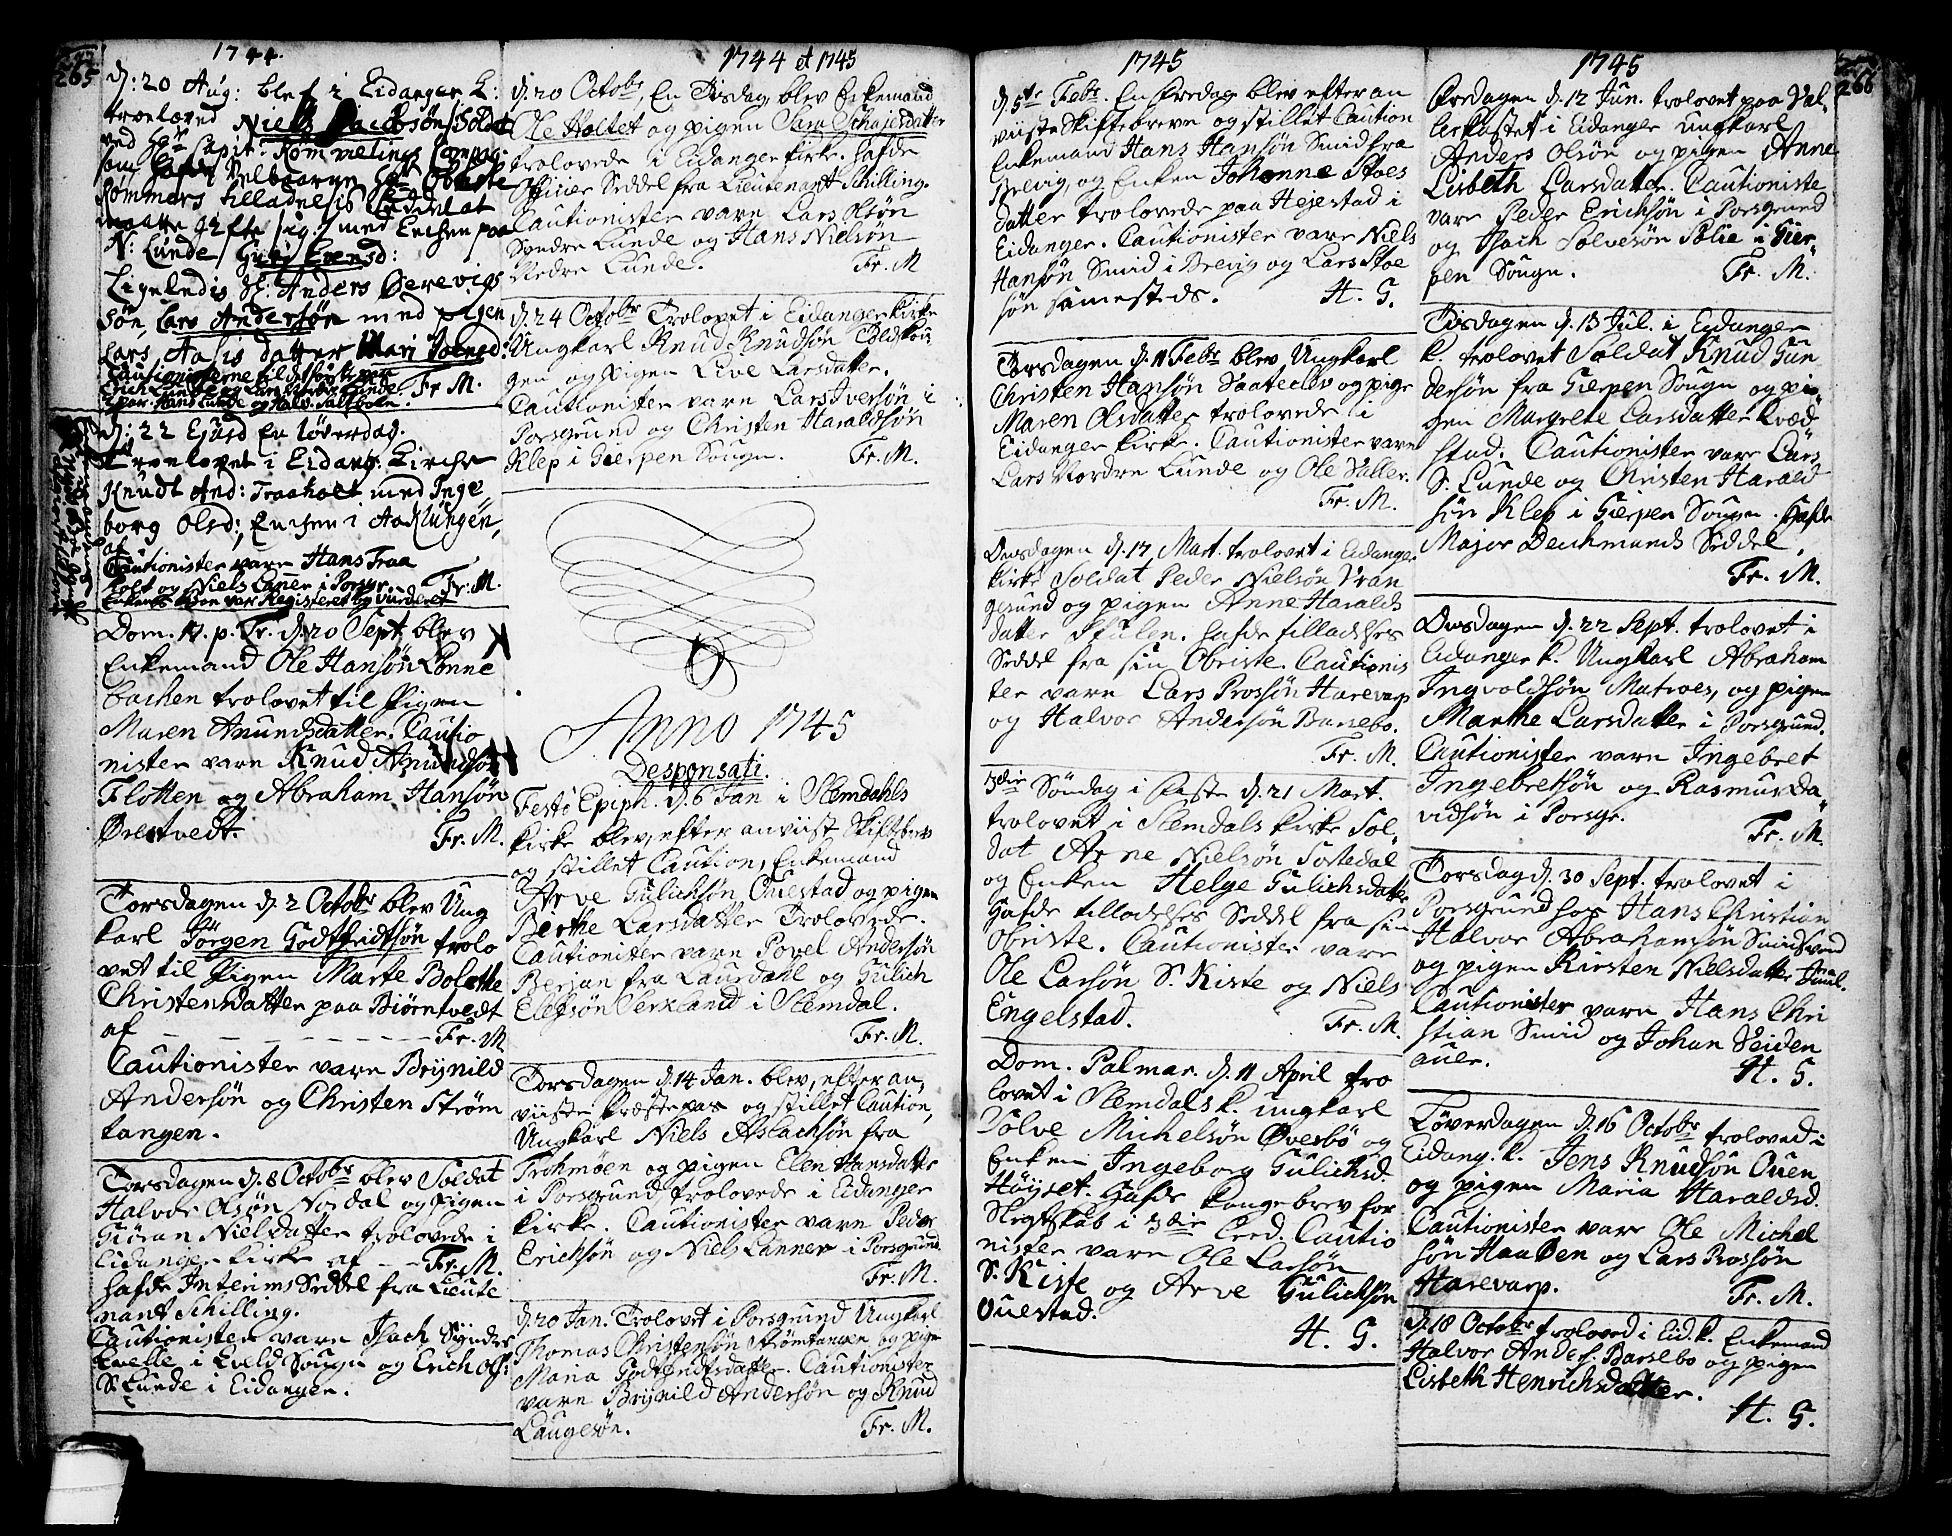 265
1744.
d: 20 Aug: blef i Eidanger K:
troeloved Niels Jacobsøn /Soldat
ved Hr Capit: Kom vielings Compag:
som hafde Velbaarne Hr Obriste
Rommers tilladnelsis Seddel at
maatte gifte sig / med Enchen paa
N: Lunde / Guri Evensd:
Ligeledis S: Anders Øerevigs
søn, Lars Andersøn med pigen
Lars Aasis datter Mari Joensd:
Cautionisterne til de første vare
Fr. M.
d: 22 Ejusd En løverdag.
Troelovet i Eidang: Kirche
Knudt And: Traaholt med Inge
borg Olsd; Enchen i Aaklungen,
af
Cautionister vare Hans Traa
holt og Niels Laner i Porsgr. Fr. M.
Enkens Boe var Registeret og vurderet
Dom. 17. p. Tr. d. 20 Sept. blev
Enkemand Ole Hansøn Lønne
bachen trolovet til Pigen
Maren Amundsdatter. Cautio
nister vare Knud Amundsøn
Flotten og Abraham Hansøn
Ørestvedt. Fr. M.
Torsdagen d. 2 Octobr blev Ung
karl Jörgen Godtfridtsøn trolo
vet til Pigen Marte Bolette
Christensdatter paa Biørntvedt
af - - - - - - - - Fr. M
Cautionister vare Brynild
Andersøn og Christen Strøm
tangen.
Torsdagen d. 8 Octobr blev Soldat
Halvor Olsøn Nordal og Pigen
Giøran Nielsdatter trolovede i
Eidanger kirke af - - Fr. M.
hafde Interims Seddel fra Lieute
nant Schilling.
Cautionister vare Isach Synder
kvelle i Eveld Sougn og Erich Ols:
S. Lunde i Eidanger.
1744 et 1745
d. 20 Octobr, En Tisdag, blev Enkemand
Ole Holtet og pigen Sara Schajesdatter
trolovede i Eidanger kirke. hafde
Officier Seddel fra Lieutenant Schilling.
Cautionister vare Lars Olsøn
Syndre Lunde og Hans Nielsøn
Nedre Lunde. Fr. M
d. 24 Octobr Trolovet i Eidanger kirke
Ungkarl Knud Knudsøn Boldskou
gen og Pigen Live Larsdatter.
Cautionister vare Lars Iversøn i
Porsgrund og Christen Haraldsøn
Klep i Gierpen Sougn. Fr. M.
Anno 1745
Desponsati.
Festo Epiph. d. 6 Jan i Slemdahls
kirke blev, efter anviist Skiftebrev
og stillet Caution, Enkemand
Arve Gulichsøn Ouestad og pigen
Berthe Larsdatter Trolovede.
Cautionister vare Povel Andersøn
Berjan fra Laurdahl og Gulich
Elefsøn Verkland i Slemdal.
Fr. M.
Torsdagen d. 14 Jan. blev, efter an,
viiste præstepas og stillet Caution,
Ungkarl Niels Aslachsøn fra
Trohmøen og pigen Elen Hansdatter
i Porsgrund trolovede i Eidanger
kirke. Cautionister vare Peder
Erichsøn og Niels Lanner i Porsgrund
Fr. M.
d. 20 Jan. Trolovet i Porsgrund Ungkarl
Thomas Christensøn Strømtangen og pige
Maria Godtfridtsdatter. Cautionister
vare Brynild Andersøn og Knud
Laugesøn. Fr. M.
1745
d. 5te Febr. En Fredag blev efter an
viiste Skiftebreve og stillet Caution
Enkemand Hans Hansøn Smid fra
Brevig, og Enken Johanne Stoes
datter trolovede paa Hejestad i
Eidanger. Cautionister vare Niels
Hansøn Smid i Brevig og Lars Stoe
søn samesteds. H. G.
Torsdagen d. 11 Febr. blev Ungkarl
Christen Hansøn Saatecløv og pige
Maren Olsdatter trolovede i
Eidanger kirke. Cautionister vare
Lars Nordre Lunde og Ole Valler.
Fr. M.
Onsdagen d. 17 Mart. trolovet i Eidanger
kirke Soldat Peder Nielsøn Vran
gesund og pigen Anne Haralds
datter Skulen. hafde tilladelses
Seddel fra sin Obriste. Cautionis
ter vare Lars Prossøn Harevarp
og Halvor Andersøn Barsebo.
Fr. M.
3die Søndag i Faste d. 21 Mart.
trolovet i Slemdals kirke Sol,
dat Arne Nielsøn Sostedal
og Enken Helge Gulichsdatter
Hafde tilladelses Seddel fra sin
Obriste. Cautionister vare
Ole Larsøn S. Kiste og Niels
Engelstad. Fr. M.
Dom. Palmar. d. 11 April tro
lovet i Slemdals k. ungkarl
Tolve Michelsøn Øvesbö og
Enken Ingeborg Gulichsd.
Höyset. Hafde kongebrev for
Slegtskab i 3die Leed. Cautio
nister vare Ole Larsøn
S. Kiste og Arve Gulichsøn
Ouestad.
H. G.
1745
266
Fredagen d. 12 Jun. trolovet paa Val,
lerkastet i Eidanger ungkarl
Anders Olsøn og pigen Anne
Lisbeth Larsdatter. Cautioniste
vare Peder Erichsøn i Porsgrund
og Isach Solvesøn Solie i Gier
pen Sougn. Fr. M.
Tisdagen d. 13 Jul. i Eidanger
k. trolovet Soldat Knud Gun
dersøn fra Gierpen Sougn og pi
gen Margrete Larsdatter Kvæd
stad. Cautionister vare Lars
S. Lunde og Christen Harald
søn Klep i Gierpen Sougn. Hafde
Major Deichmands Seddel.
Fr. M.
Onsdagen d. 22 Sept. trolovet i
Eidanger k. Ungkarl Abraham
Ingvoldsøn Matroes, og pigen
Marthe Larsdatter i Porsgrund.
Cautionister vare Ingebret
Ingebretsøn og Rasmus Da
vidsøn i Porsgr. Fr. M.
Torsdag d. 30 Sept. trolovet i
Porsgrund hos Hans Christian
Halvor Abrahamsøn Smidsvend
og pigen Kirsten Nielsdatter
Cautionister vare Hans Chri
stian Smid og Johan Veiden
auer. H. G.
Löverdagen d. 16 Octobr troloved i
Eidang. k. Jens Knudsøn Ouen
og pigen Maria Haraldsd.
Cautionister vare Ole Michel
søn Haaøen og Lars Prossøn
Harevarp. Fr. M.
d. 18 Octobr troloved i Eid. k. Enkemand
Halvor Anders. Barsebo og pigen
Lisbeth Henrichsdatter.
H. G.